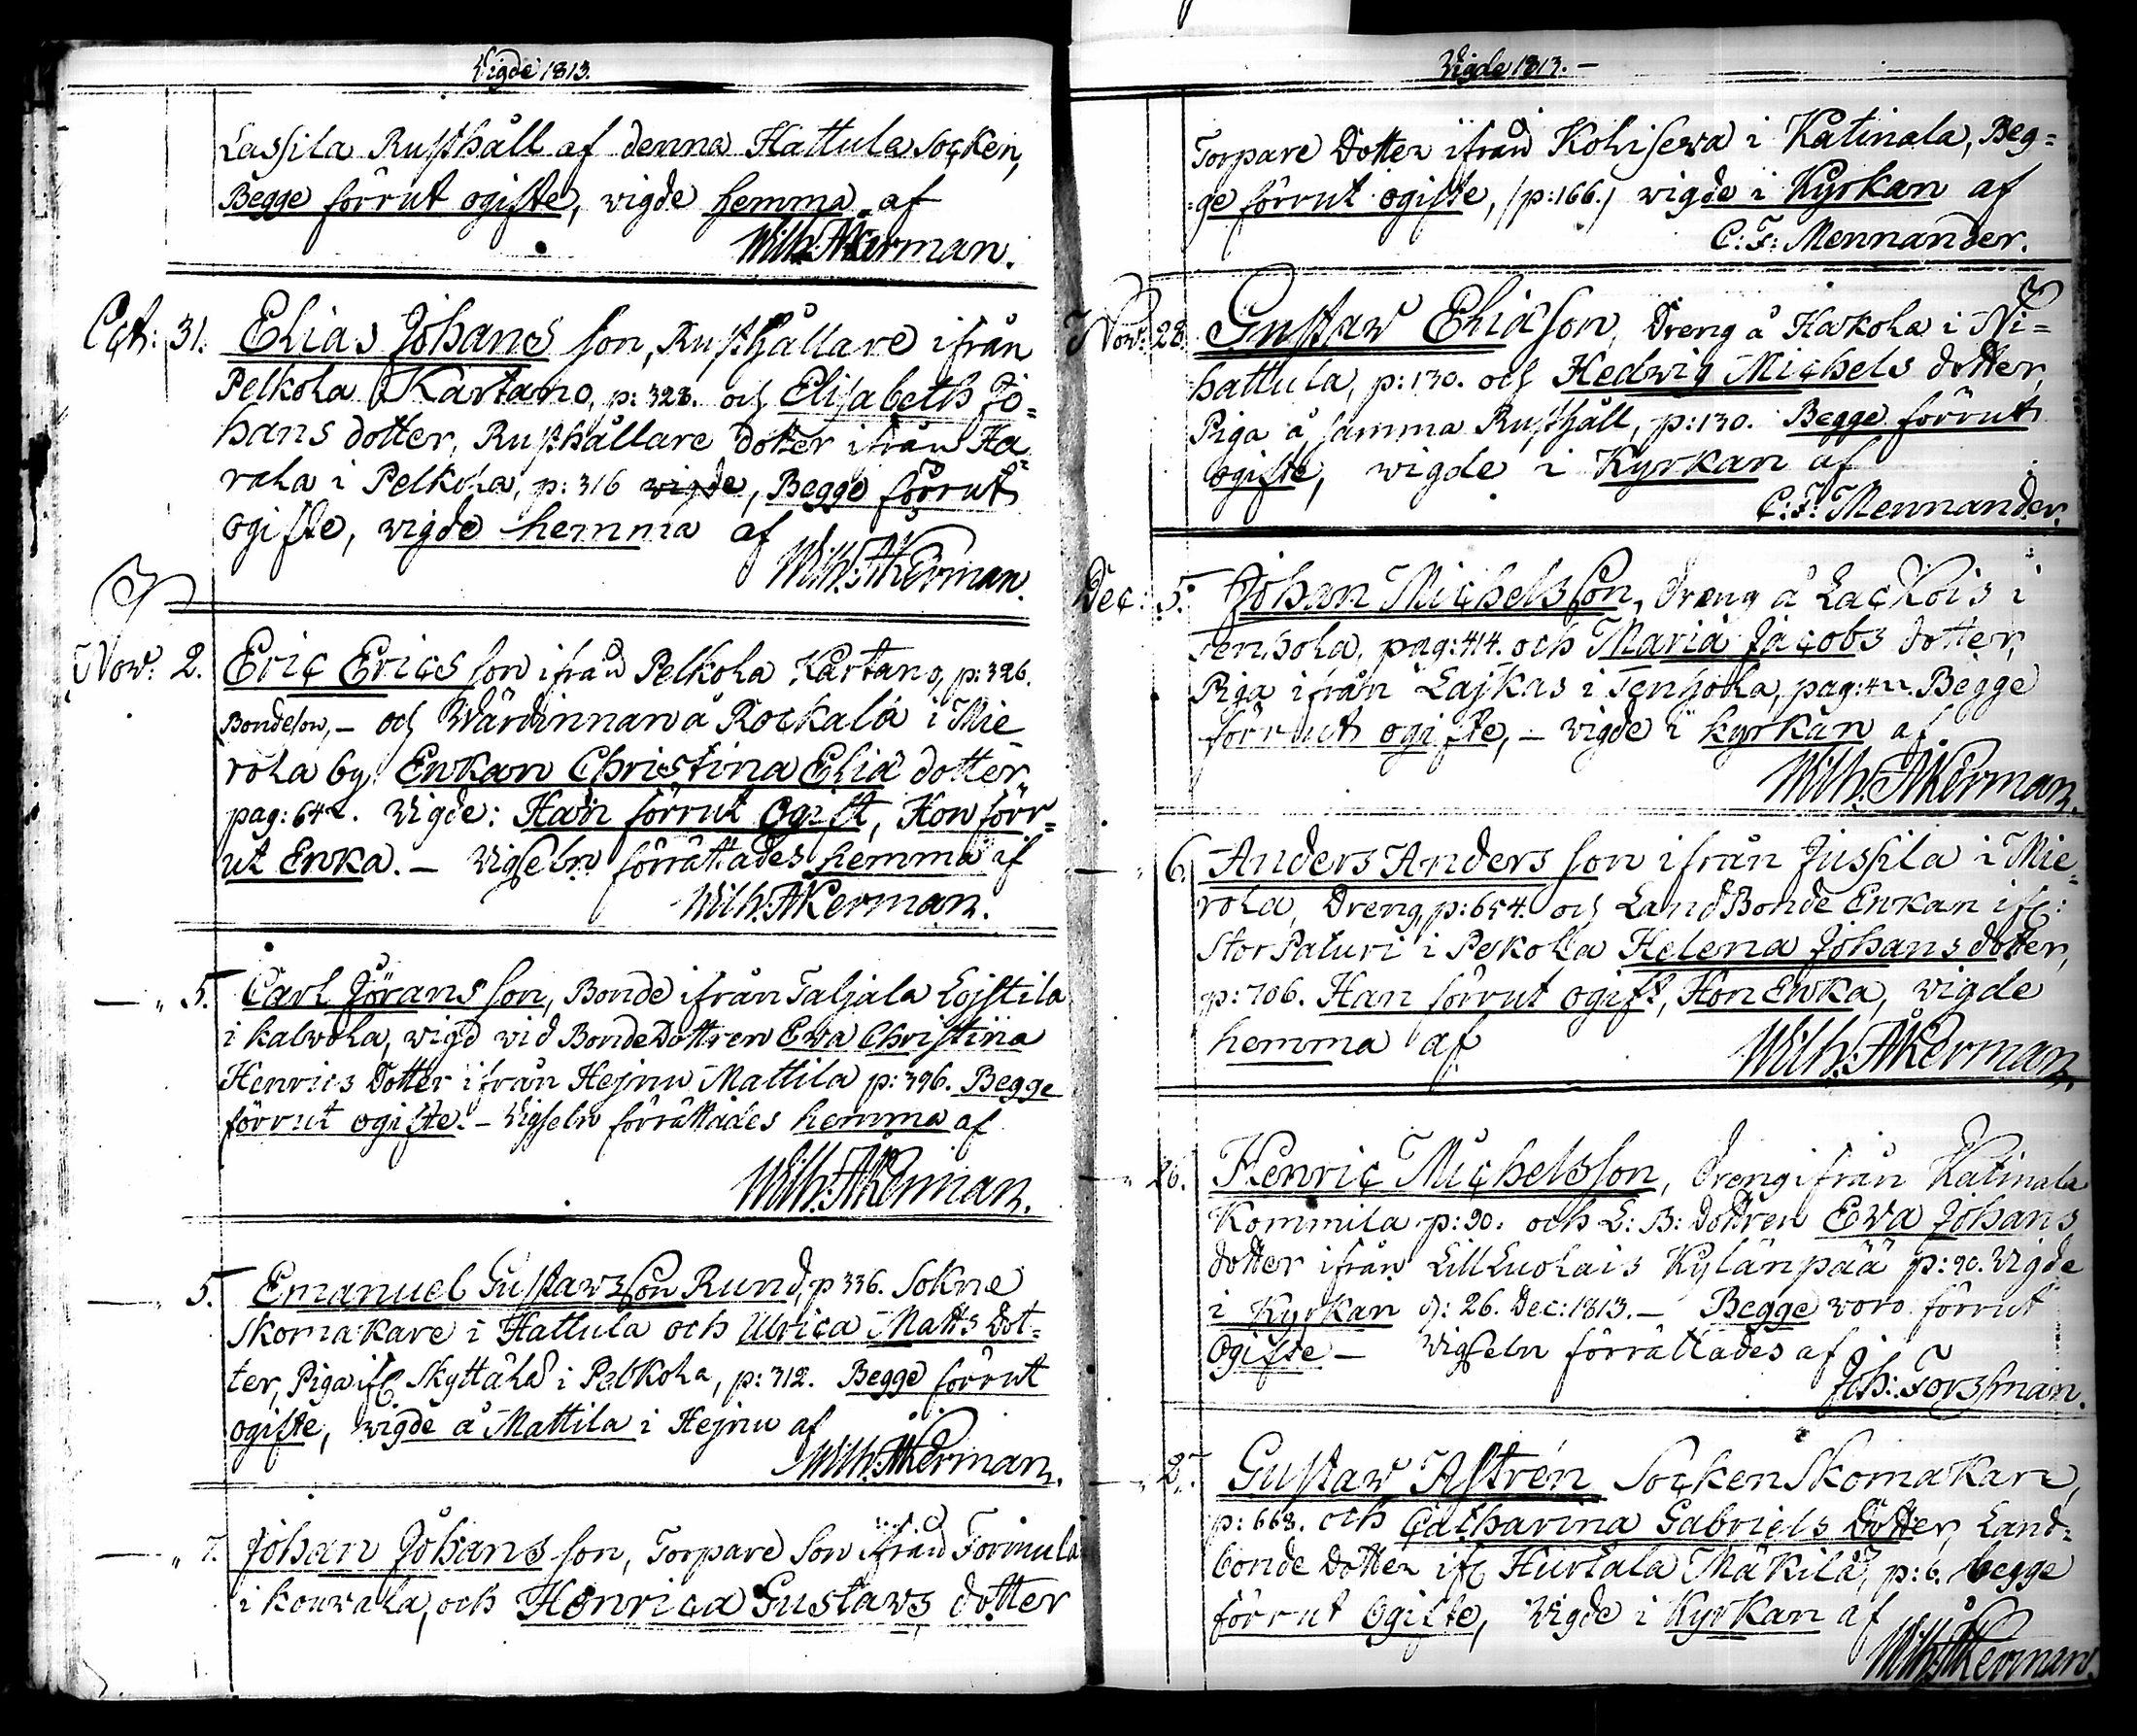 Vigde 1813.
Lassila Rusthåll af denna Hattula Socken,
Begge förrut ogifte, vigde hemma af
Wilh: Åkerman.
Oct: 31. Elias Johans son, Rusthållare ifrån
Pelkola Kartano, p: 328. och Elisabeth Jo=
hans dotter, Rusthållare dotter ifrån Ha=
rola i Pelkola, p: 316 vigde, Begge förrut
ogifte, vigde hemma af
Wilh: Åkerman.
Nov: 2. Eric Erics son ifrån Pelkola Kartano, p: 326.
Bondeson, – och Wärdinnan å Rockala i Mie=
rola by Enkan Christina Elia dotter
pag: 642. Vigde: Han förrut Ogift, Hon förr=
ut Enka. – Vigseln förrättades hemma af
Wilh: Åkerman.
— „ 5. Carl Jörans son, Bonde ifrån Taljala Lojstila
i Kalvola, vigd vid Bonde Dottren Ewa Christina
Henrics Dotter ifrån Hejnu Mattila p: 396. Begge
förrut ogifte. – Vigseln förrättades hemma af
Wilh: Åkerman.
— „ 5. Emanuel Gustavsson Rund, p 336. Sokne
Skomakare i Hattula och Ulrica Matts Dot=
ter, Piga ifr Skyttälä i Pelkola, p: 312. Begge förrut
ogifte, vigde å Mattila i Hejnu af
Wilh: Åkerman.
— „ 7. Johan Johans son, Torpare Son ifrån Tormula
i Kouvala, och Henrica Gustavs dotter
Vigde 1813. –
Torpare Dotter ifrån Kohisewa i Katinala, Beg=
=ge förrut ogifte, /p: 166./ vigde i Kyrkan af
C: F: Mennander.
Nov: 28. Gustav Eliæson, Dreng å Hakola i Ni=
hattula, p: 130. och Hedwig Michels dotter,
Piga å samma Rusthåll, p: 130. Begge förrut
ogifte, vigde i Kyrkan af
C: F: Mennander.
Dec: 5. Johan Michelsson, dræng å Lackois i
Tenhola, pag: 414. och Maria Jacobs dotter,
Piga ifrån Lajkas i Tenhola, pag: Begge
förrut ogifte, – vigde i kyrkan af
Wilh: Åkerman.
— „ 6. Anders Anders son ifrån Jussila i Mie=
rola, Dreng, p: 654. och LandBonde Enkan ifr:
Stor Paturi i Pelkola Helena Johans dotter,
p: 706. Han förrut ogift, Hon Enka, vigde
hemma af Wilh: Åkerman.
— „ 26. Henric Michelsson, dreng ifrån Katinala
Kommila p: 90. och L: B: dottren Ewa Johans
dotter ifrån Lill Luolais Kylänpää p: 90. Vigde
i Kyrkan d: 26. Dec: 1813. – Begge voro förrut
Ogifte – Vigseln förrättades af
Joh: Forssman.
— „ 27. Gustav Astrén Socken Skomakare,
p: 668. och Catharina Gabriels Dotter, Land=
bonde Dotter ifr Hurtala Mäkilä, p: 6. begge
förrut Ogifte, Vigde i Kyrkan af
Wilh: Åkerman.